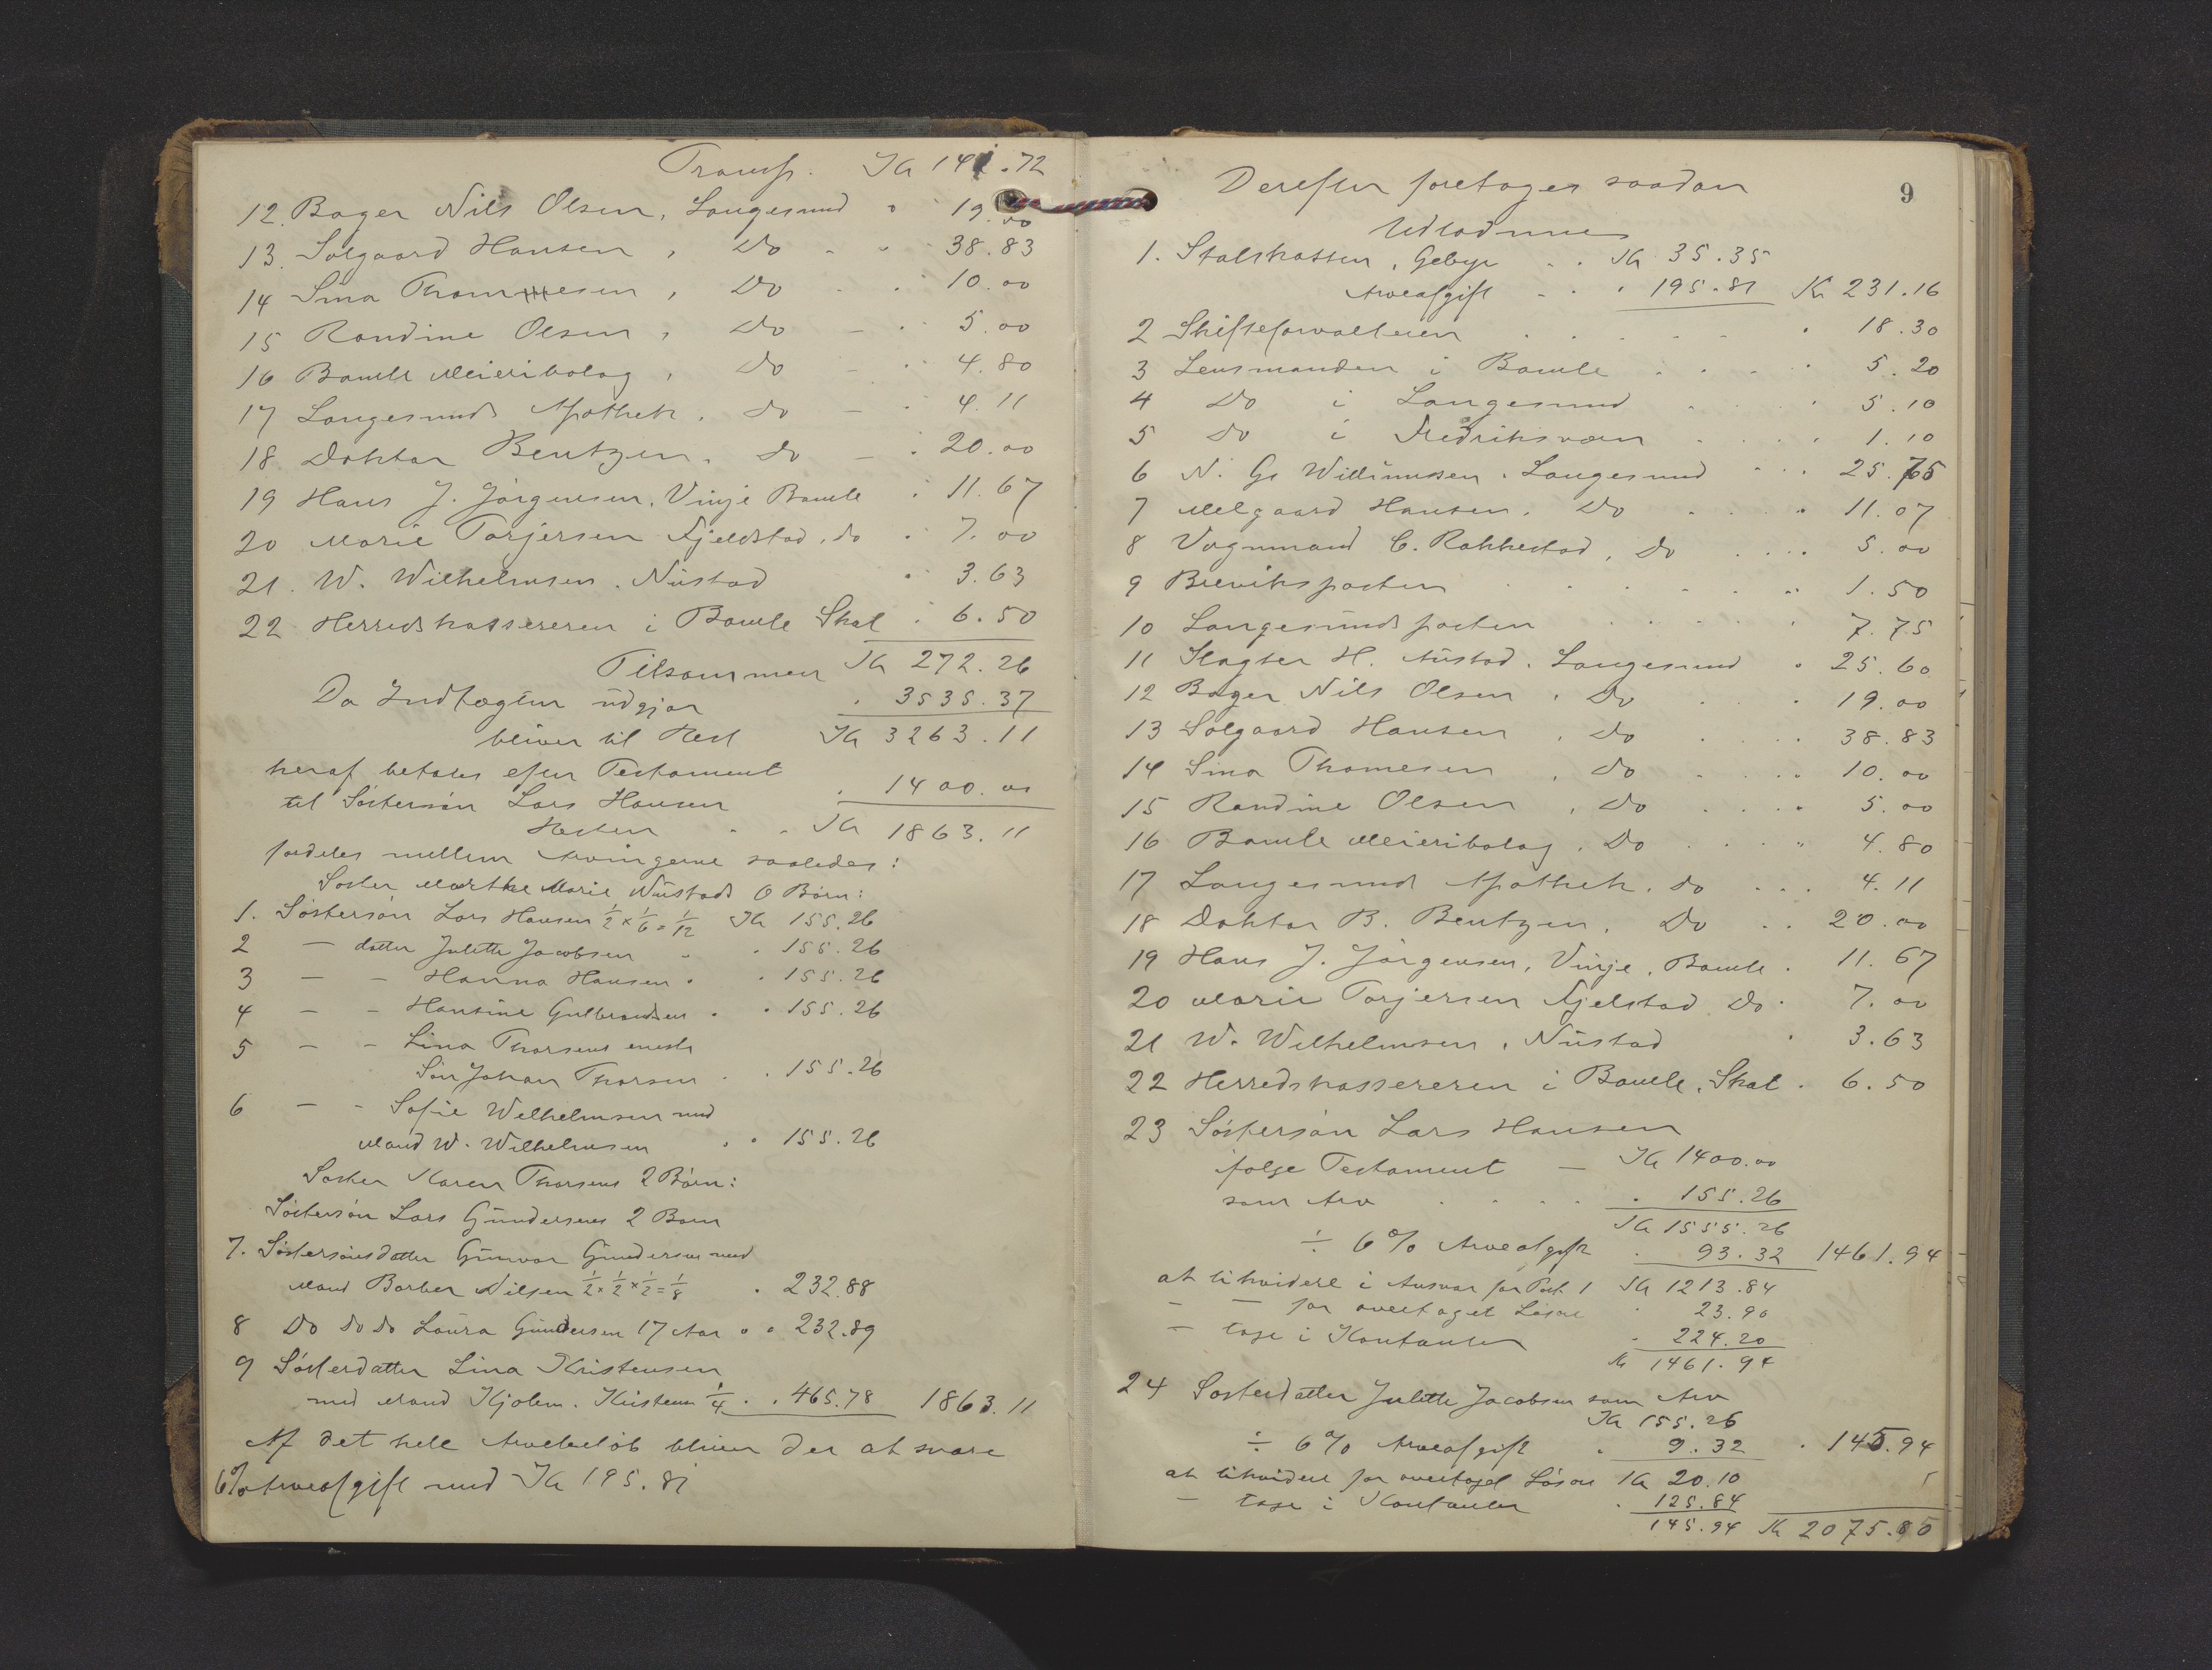 Transp. Kr 141.72
12. Bager Nils Olsen, Langesund " 19.00
13. Solgaard Hansen, Do - " 38.83
14 Sina Thommesen, Do - " 10.00
15 Randine Olsen, Do - " 5.00
16 Bamle Meieribolag, Do - " 4.80
17 Langesunds Apothek, do - " 4.11
18 Doktor Bentzen, do - " 20.00
19 Hans J. Jörgensen, Vinje Bamle " 11.67
20 Marie Torjersen Fjeldstad, do " 7.00
21. W. Wilhelmsen, Nüstad " 3.63
22 Herredskassereren i Bamle Skat " 6.50
Tilsammen Kr 272.26
Da Indtægten udgjør " 3535.37
bliver til Rest Kr 3263.11
heraf betales efter Testament
til Søstersøn Lars Hansen " 1400.00
Resten - - Kr 1863.11
fordeles mellem Arvingerne saaledes:
Søster Marthe Marie Nüstads 6 Børn:
1. Søstersøn Lars Hansen ½ × 1/6 = 1/12 Kr 155.26
2 — datter Julette Jacobsen " " 155.26
3 — - Hanna Hansen " " 155.26
4 — - Hansine Gulbrandsen " " 155.26
5 — - Lina Thorsens eneste
Søn Johan Thorsen " " 155.26
6 — - Sofie Wilhelmsen med
Mand W. Wilhelmsen " " 155.26
Søster Karen Thorsens 2 Børn:
Søstersøn Lars Gündersens 2 Børn
7. Søstersønsdatter Günvor Gündersen med
Mand Barber Nilsen ½ × ½ × ½ = 1/8 " 232.88
8 Do do do Laura Gündersen 17 Aar " " 232.89
9 Søsterdatter Lina Kristensen
med Mand Kjølem. Kristensen ¼ " " 465.78 1863.11
Af det hele Arvebeløb bliver der at svare
6% Arveafgift med Kr 195.81
9
Derefter foretages saadan
Udlodning
1. Statskassen, Gebyr - - Kr 35.35
Arveafgift - - " 195.81 Kr 231.16
2 Skifteforvalteren " 18.30
3 Lensmanden i Bamle " 5.20
4 Do i Langesund " 5.10
5 Do i Fredriksværn " 1.10
6 N. Gs Willumssen, Langesund " 25.75
7 Melgaard Hansen, Do " 11.07
8 Vognmand C. Rakkestad, Do " 5.00
9 Breviksposten " 1.50
10 Langesundsposten " 7.75
11 Slagter H. Nüstad, Langesund " 25.60
12 Bager Nils Olsen, Do " 19.00
13 Solgaard Hansen, Do " 38.83
14 Sina Thomesen, Do " 10.00
15 Randine Olsen, Do " 5.00
16 Bamle Meieribolag, Do " 4.80
17 Langesunds Apothek, do " 4.11
18 Doktor B. Bentzen, Do " 20.00
19 Hans J. Jörgensen, Vinje, Bamle " 11.67
20 Marie Torjersen Fjelstad Do " 7.00
21 W. Wilhelmsen, Nüstad " 3.63
22 Herredskassereren i Bamle, Skat " 6.50
23 Søstersøn Lars Hansen
ifølge Testament — Kr 1400.00
som Arv " 155.26
Kr 1555.26
÷ 6% Arveafgift " 93.32 1461.94
at likvidere i Ansvar for Post 1 Kr 1213.84
- — for overtaget Løsøre " 23.90
— tage i Kontanter " 224.20
Kr 1461.94
24 Søsterdatter Julette Jacobsen som Arv
Kr 155.26
÷ 6% Arveafgift " 9.32 " 145.94
at likvidere for overtaget Løsøre Kr 20.10
— tage i Kontanter " 125.84
145.94 Kr 2075.85